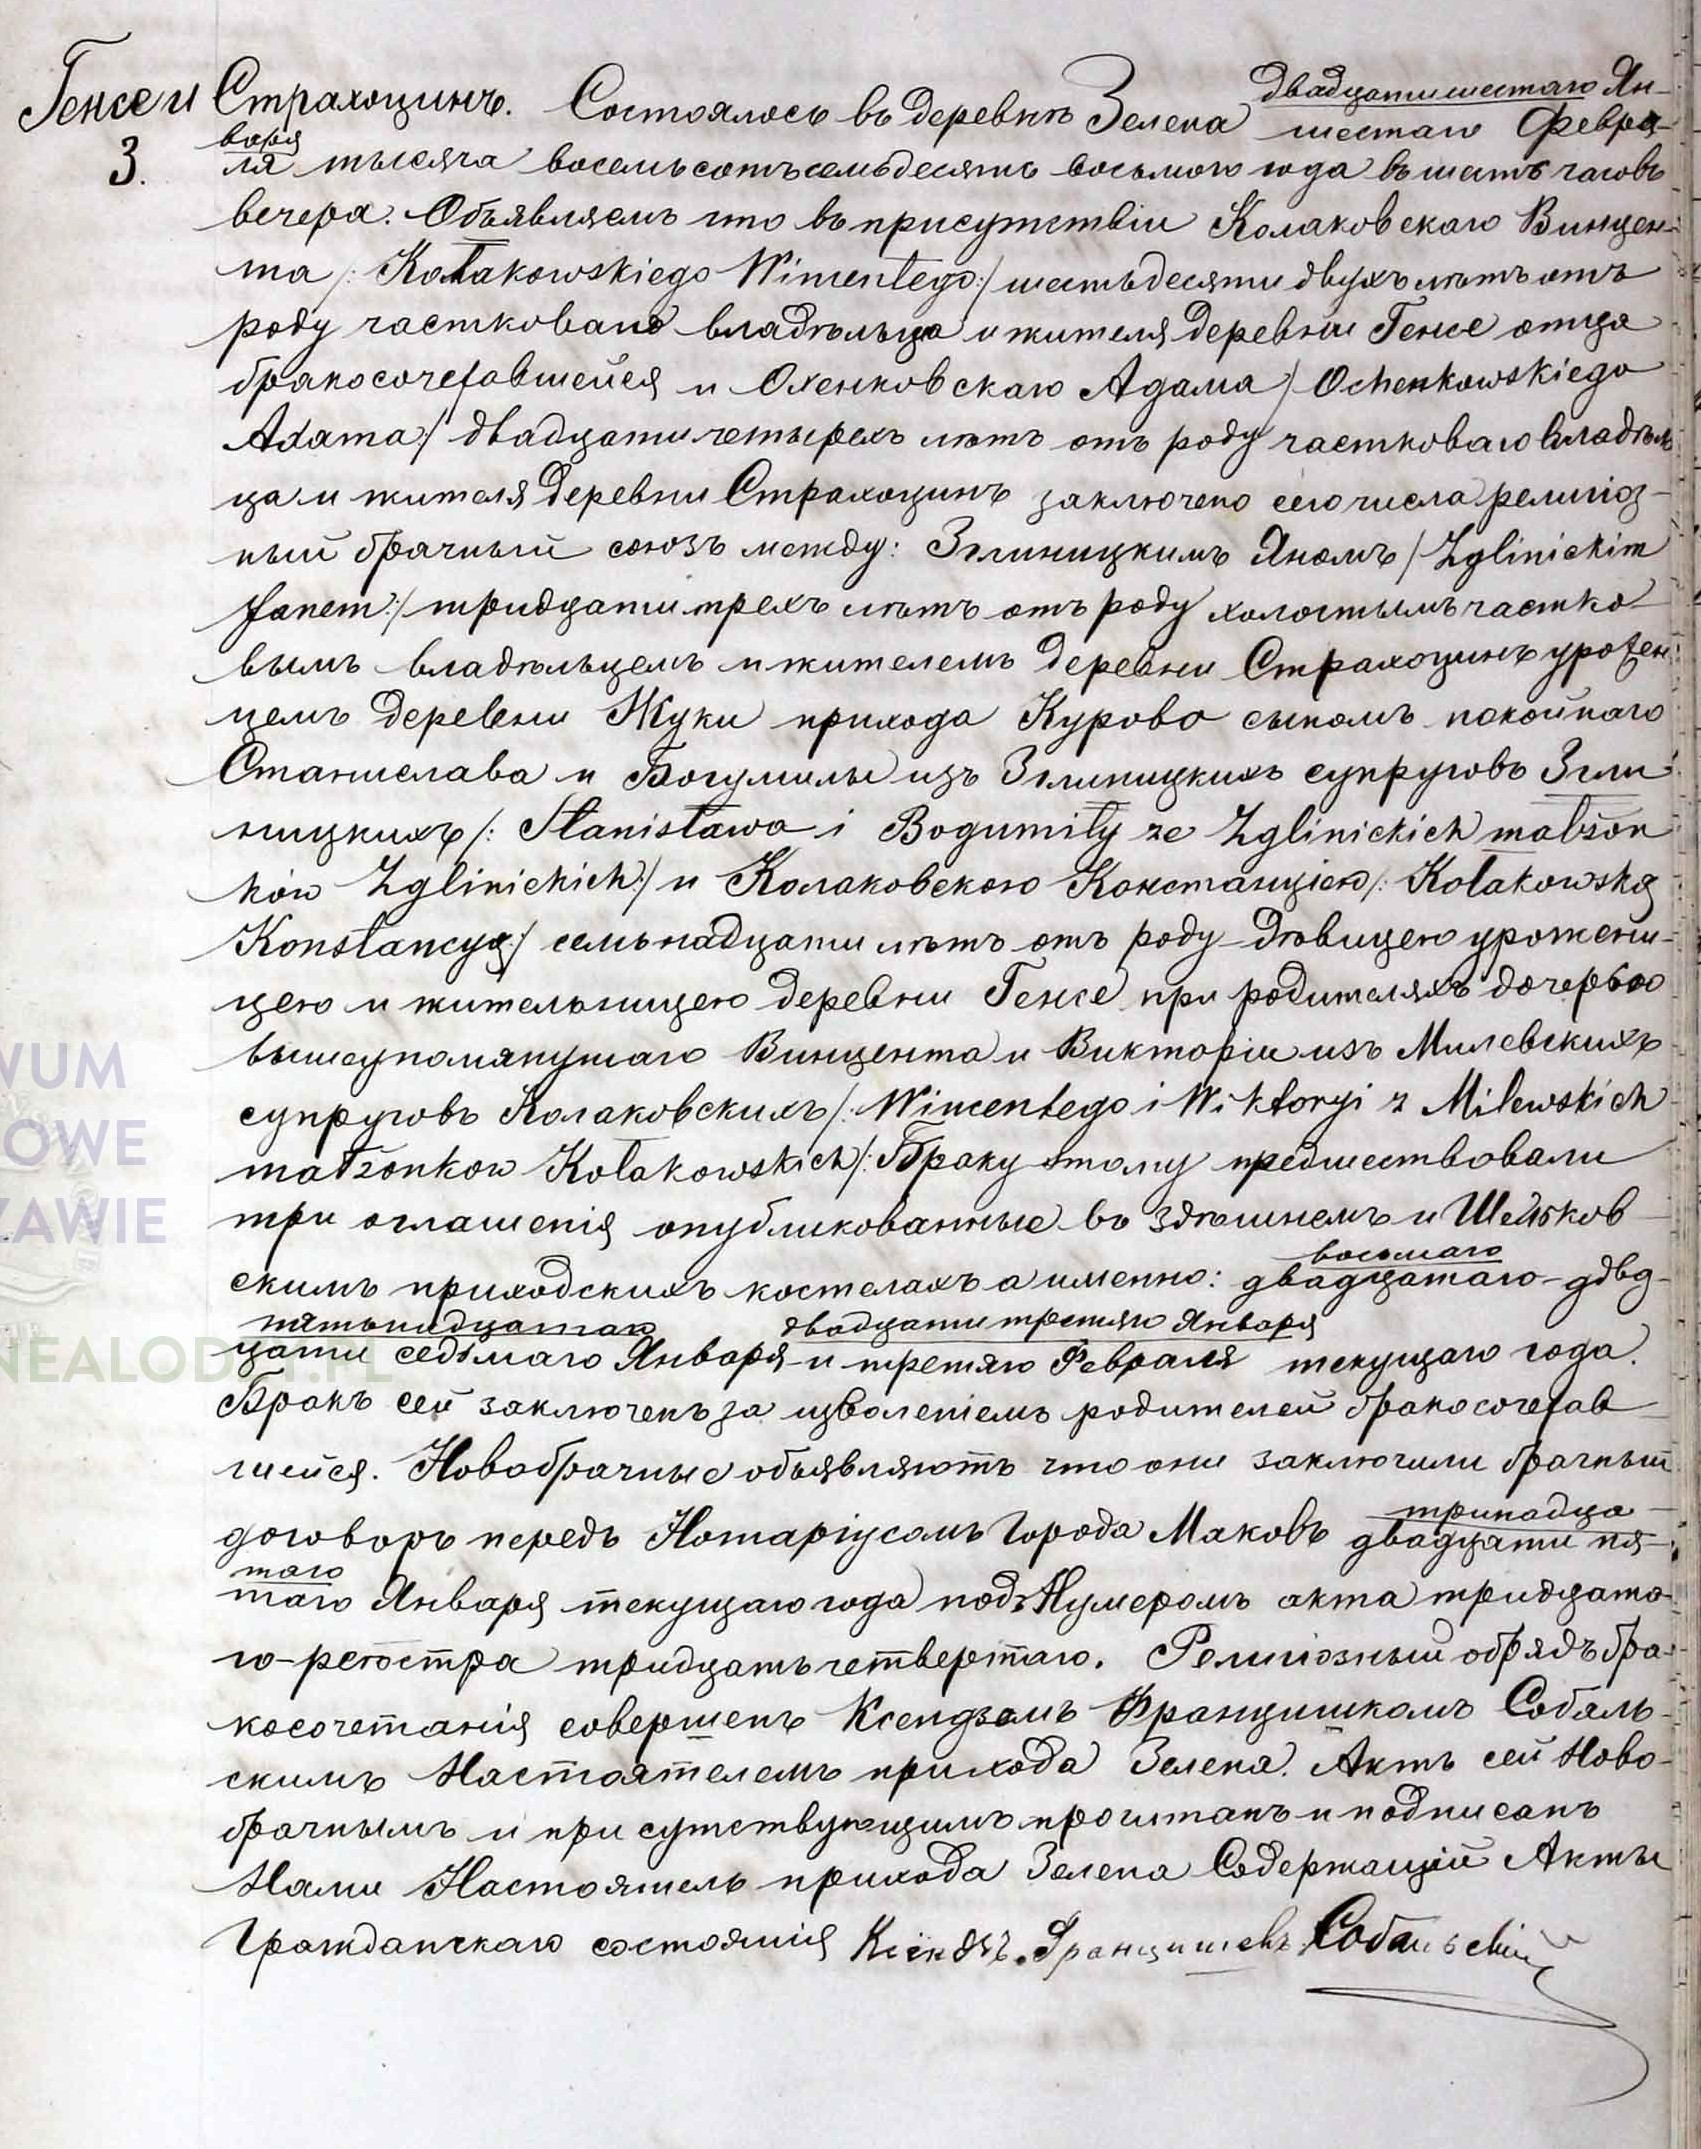 Генсе и Страхоцинъ. Состоялось въ деревнѣ Зелена двадцати шестаго Ян-
3. варя
шестаго Февра-
ля тысяча восемьсотъ семьдесятъ восьмого года въ шесть часовъ
вечера. Объявляемъ что въ присутствіи Колаковскаго Винцен-
та /: Kołakowskiego Wincentego :/ шестьдесяти двухъ лѣтъ отъ
роду частковаго владѣльца и жителя деревни Генсе отца
бракосочетавшейся и Охенковскаго Адама / Ochenkowskiego
Adama :/ двадцати четырехъ лѣтъ отъ роду частковаго владѣль
ца и жителя деревни Страхоцинъ заключено сего числа религіоз-
ный брачный союзъ между: Зглиницкимъ Яномъ / Zglinickim
Janem :/ тридцати трехъ лѣтъ отъ роду холостымъ частко-
вымъ владѣльцемъ и жителемъ деревни Страхоцинъ урожен-
цемъ деревни Жуки прихода Курово сыномъ покойнаго
Станислава и Богумилы изъ Зглиницкихъ супруговъ Згли-
ницкихъ /: Stanisława i Bogumiły ze Zglinickich małżon
ków Zglinickich :/ и Колаковскою Констанціею /: Kołakowską
Konstancyą :/ семьнадцати лѣтъ отъ роду дѣвицею урожени-
цею и жительницею деревни Генсе при родителяхъ дочерью
вышеупомянутаго Винцента и Викторіи изъ Милевскихъ
супруговъ Колаковскихъ /: Wincentego i Wiktoryi z Milewskich
małżonkow Kołakowskich /: Браку этому предшествовали
три оглашенія опубликованные въ здѣшнемъ и Шельков
скимъ приходскихъ костелахъ а именно: восьмаго
двадцатаго - двад-
пятьнадцатаго двадцати третяго Января
цати седьмаго Января и третяго Февраля текущаго года.
Бракъ сей заключенъ за изволеніемъ родителей бракосочетав
шейся. Новобрачные объявляютъ что они заключили брачный
договоръ передъ Нотаріусомъ Города Маковъ тринадца-
двадцати пя-
таго
таго Января текущаго года подъ Нумеромъ акта тридцата-
го-реэстра тридцать четвертаго. Религіозный обрядъ бра-
косочетанія совершенъ Ксендзомъ Францишкомъ Собаль-
скимъ Настоятелемъ прихода Зелена. Актъ сей Ново-
брачнымъ и присутствующимъ прочитанъ и подписанъ
Нами Настоятель прихода Зелена Содержащій Акты
Гражданскаго состоянія Ксёндзъ Францишекъ Собальскій
WUM
OWE
ZAWIE
NEALODZY.PL